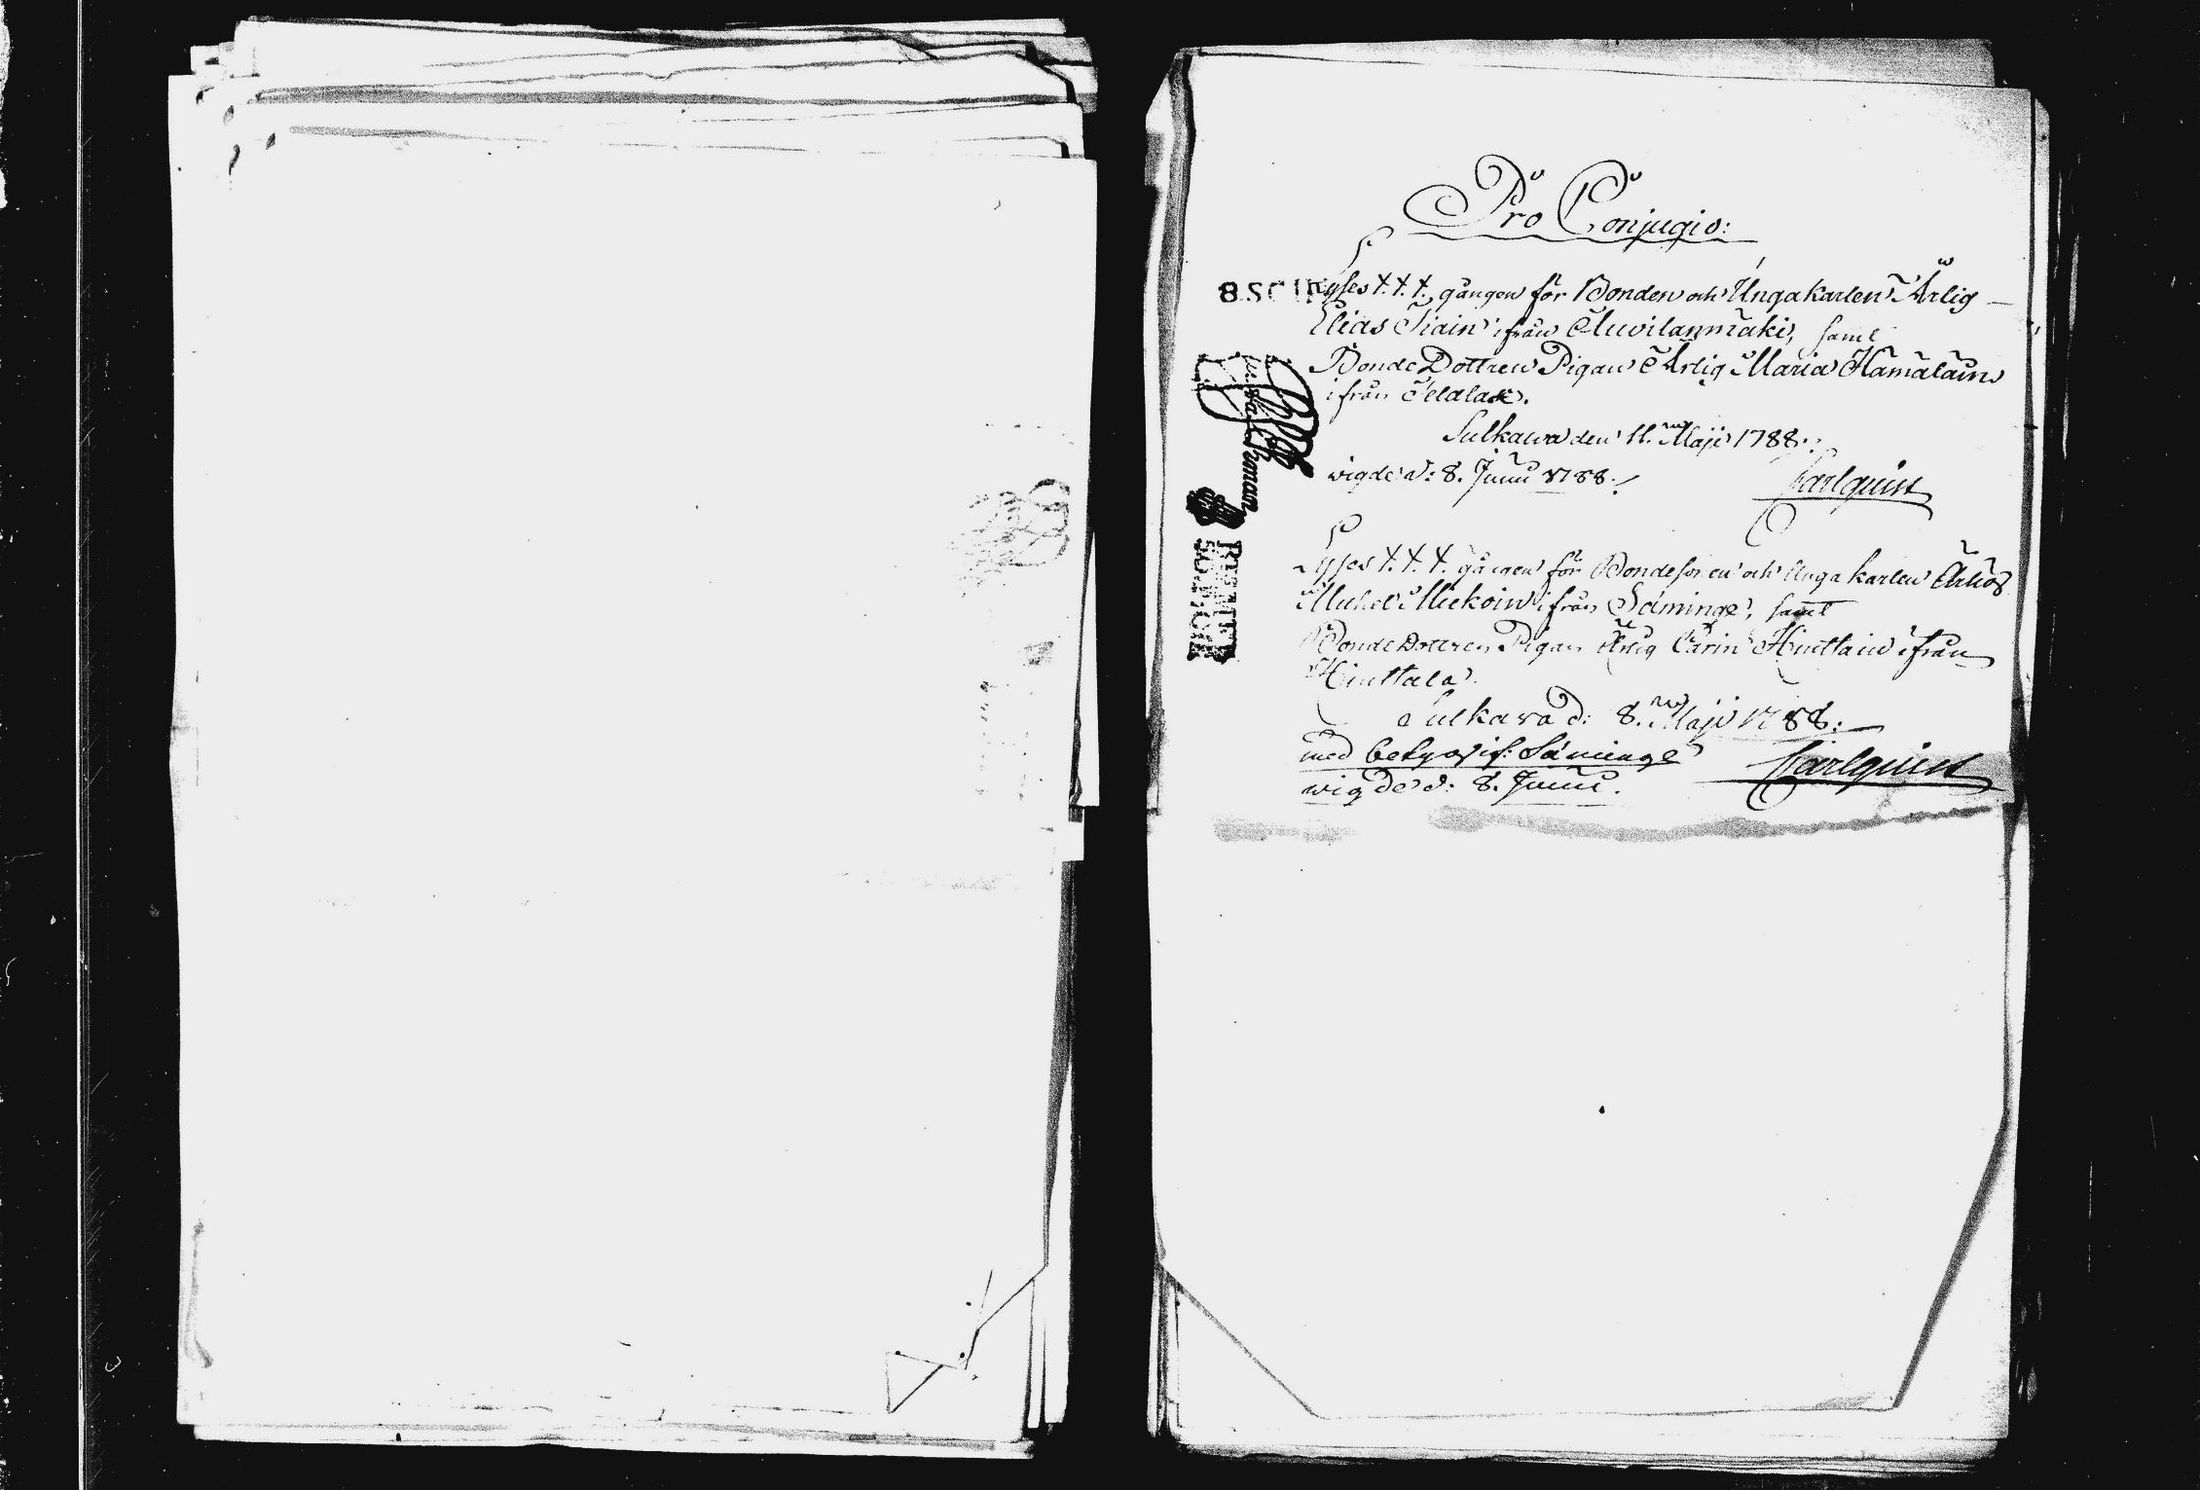 Pro Conjugio:
Lyses 1. 1. 1. gången för Bonden och Unga karlen Ärlig
Elias Tiain ifrån Auvilanmäki, samt
Bonde Dottren Pigan Ärlig Maria Hämäläin
ifrån Telalax.
Sulkawa den 11. Maji 1788.
wigde d: 8. Junii 1788.
Carlquist
Lyses 1. 1. 1. gången för Bondesonen och Unga karlen Ärlig
Michel Miekoin ifrån Säminge, samt
Bonde Dottren Pigan Ärlig Carin Hinttain ifrån
Hinttala.
Sulkava d: 8. Maji 1788.
med betyg if: Säminge
wigde d: 8. Junii.
Carlquist